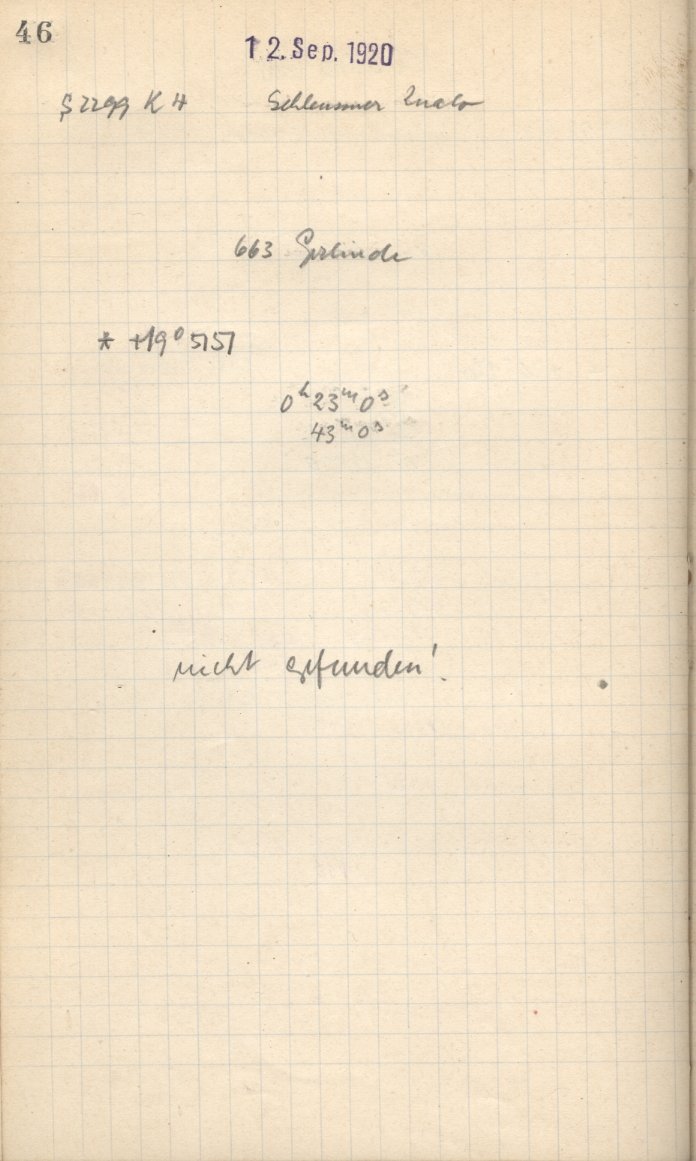 46
12. Sep. 1920
S 2299 K H Schleussner
663 Gerlinde
* +19° 5151
0ʰ 23ᵐ 0ˢ
43ᵐ 0ˢ
nicht gefunden!